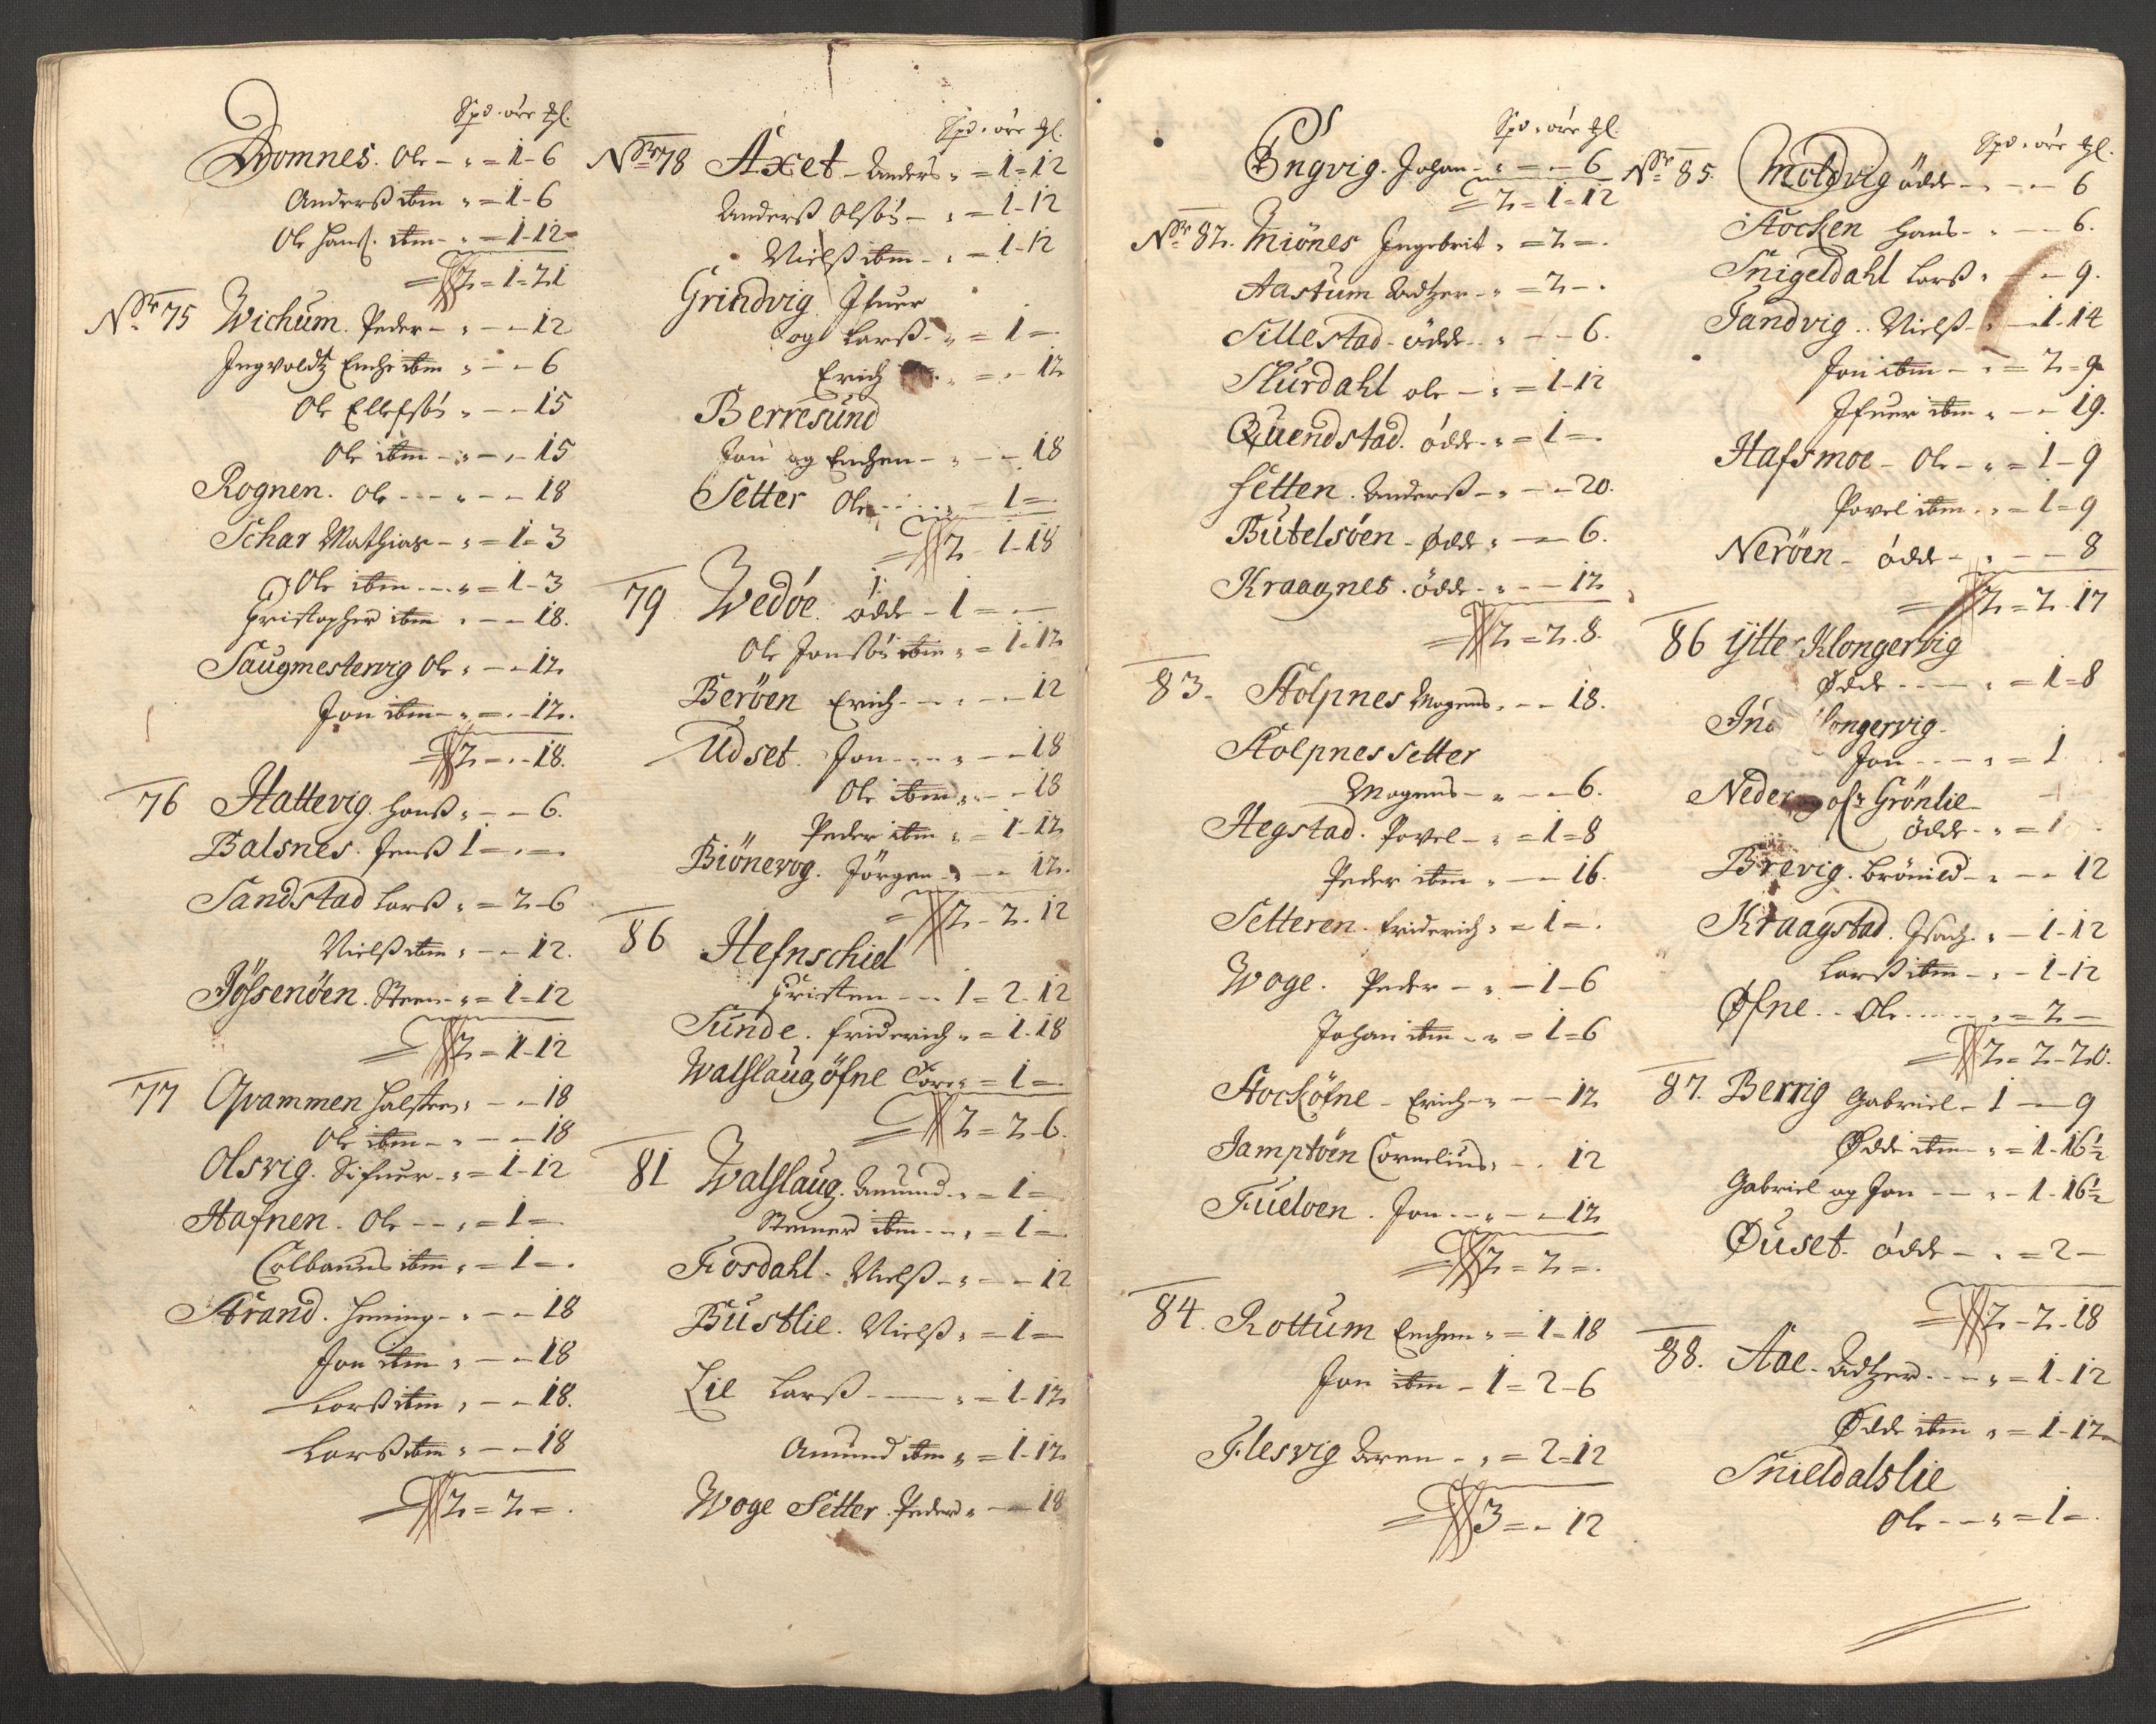 Spd. ore gl.
Dromnes. Ole - " = 1 - 6
Anderß ibm " = 1 - 6
Ole Hanß. ibm - " = 1 - 12
= 2 = 1 = 21
No 75 Wichum. Peder - " - - 12
Ingvoldtz Enche ibm " - - 6
Ole Ellefsön " - - 15
Ole ibm - " - - 15
Rognen. Ole - - - " - - 18
Schar Mathias - " = 1 = 3
Ole ibm - - " = 1 - 3
Christopher ibm " - - 18.
Saugmestervig Ole " - - 12
Jon ibm - " = - 12.
2 = - 18.
76 Hattevig. Hanß " - - 6.
Balsnes. Jenß 1 = - =
Sandstad Larß " = 2 - 6
Nielß ibm " - - 12.
Jössenöen. Steen - " = 1 = 12
= 2 = 1 - 12
77 Qvammen Halsten " - - 18
Ole ibm - " - - 18
Olsvig. Sifuer - " = 1 - 12
Hafnen. Ole - - " = 1 =
Colbanus ibm " = 1 = .
Strand. Heming - " - - 18
Jon ibm " - - 18
Larß ibm " - - 18.
Larß ibm " - - 18
= 2 = 2 = .
Spd. ore gl.
No 78 Axet - Anders " = 1 = 12
Anderß Olsön - " = 1 - 12
Nielß ibm - " = 1 - 12
Grindvig Ifuer
og Larß - " = 1 =
Erich " = - 12
Berresund
Jon og Enchen - " - - 18
Setter Ole - - - " = 1 =
= 2 - 1 - 18
79 Wedöe. ödde - 1 = - -
Ole Jonsön ibm " = 1 = 12
Beröen Erich - - " - - 12
Udset. Jon - - - " - - 18
Ole ibm " - - 18
Peder ibm " = 1 - 12
Biönevog. Jörgen - " - - 12.
= 2 - 2 - 12
86 Hefnschiel
Christen - - 1 = 2 - 12
Sunde. Friderich " = 1 - 18
Walslaug öfne Tore " = 1 =
= 2 = 2 - 6.
81 Walslaug. Amund - " = 1 =
Steiner ibm - - " = 1 =
Fiosdahl. Nielß - " - - 12
Bustlie. Nielß " = 1 =
Lie Larß - - " = 1 - 12
Amund ibm " = 1 - 12
Woge Setter. Peder " - - 18
Spd. ore gl.
Engvig. Johan - " = - 6
= 2 = 1 = 12
No 82. Miönes Ingebrit " = 2 = .
Aastum Adtzer - " = 2 - .
Sillestad - ödde - " - - 6.
Slurdahl ole - " = 1 - 12
Quendstad. ödde - " = 1 = .
Setten. Anderß - " - - 20.
Butelsöen - ödde " - - 6.
Kraagnes. ödde - " - - 12
= 2 = 2 . 8.
83. Stolpnes Mogens " - - 18.
Stolpnes Setter
Mogens - " - - 6.
Hegstad. Povel - " = 1 = 8
Peder ibm " - - 16.
Setteren. Friderich " = 1 = .
Woge. Peder - " - 1 - 6
Johan ibm - " = 1 = 6
Stocköfne - Erich - " - - 12
Jamptöin Cornelius " - - 12
Fuelöen. Jon - - " - - 12
= 2 = 2 = .
84. Rottum Enchen " = 1 = 18
Jon ibm - 1 = 2 - 6
Flesvig Aren - " = 2 = 12
= 3 = - 12
Spd. ore gl.
No 85. Moldvig ödde - - - 6
Stocken Hans - " - - 6.
Snigeldahl Larß " - - 9.
Sandvig. Nielß - " - 1 - 14
Jon ibm - " = 2 = 9
Ifuer ibm " - - 19.
Hafsmoe - Ole - " = 1 - 9
Povel ibm " = 1 = 9
Neröen - ödde - " - - 8
= 2 = 2 . 17
86 Ytter Klongervig
Ödde - - - " = 1 = 8
longervig -
Jon - - - " = 1
Neder og ofr Grönlie -
ödde - " = 1
Brevig. Brönild - " - - 12
Kraagstad. Isach " - 1 - 12
Larß ibm - " - 1 - 12
Öfne. Ole - - - " = 2 -
= 2 = 2 - 20.
87. Berrig Gabriel - 1 - - 9
Ödde ibm - " = 1 - 16½
Gabriel og Jon - - " - 1 - 16½
Öuset. ödde - " = 2 -
= 2 - 2 - 18
88. Aae. Adtzer - - - " = 1 - 12
Ödde ibm " = 1 - 12
Snieldalslie
Ole - - " = 1 = .